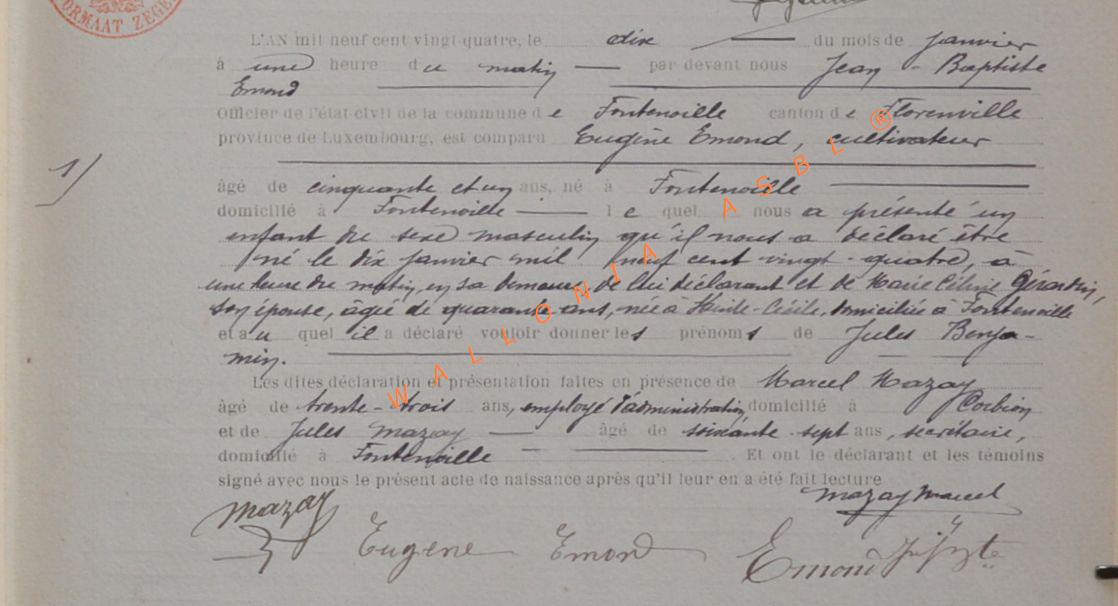 ORMAAT ZEGE
L'AN mil neuf cent vingt-quatre, le dix du mois de janvier
à une heure du matin par devant nous Jean-Baptiste
Emond
Officier de l'état-civil de la commune de Fontenoille canton de Florenville
province de Luxembourg, est comparu Eugène Emond, cultivateur
1)
âgé de cinquante et un ans, né à Fontenoille
domicilié à Fontenoille lequel nous a présenté un
enfant du sexe masculin qu'il nous a déclaré être
né le dix janvier mil neuf cent vingt-quatre, à
une heure du matin, en sa demeure, de lui déclarant et de Marie Céline Gérardin,
son épouse, âgée de quarante ans, née à Sainte-Cécile, domiciliée à Fontenoille
et auquel il a déclaré vouloir donner les prénoms de Jules Benja-
min.
Les dites déclaration et présentation faites en présence de Marcel Mazay
âgé de trente-trois ans, employé d'administration, domicilié à Corbion
et de Jules Mazay âgé de soixante sept ans, secrétaire,
domicilié à Fontenoille . Et ont le déclarant et les témoins
signé avec nous le présent acte de naissance après qu'il leur en a été fait lecture
Mazay Marcel
Mazay
Eugène Emond Emond
WALLONIA ASBL ®